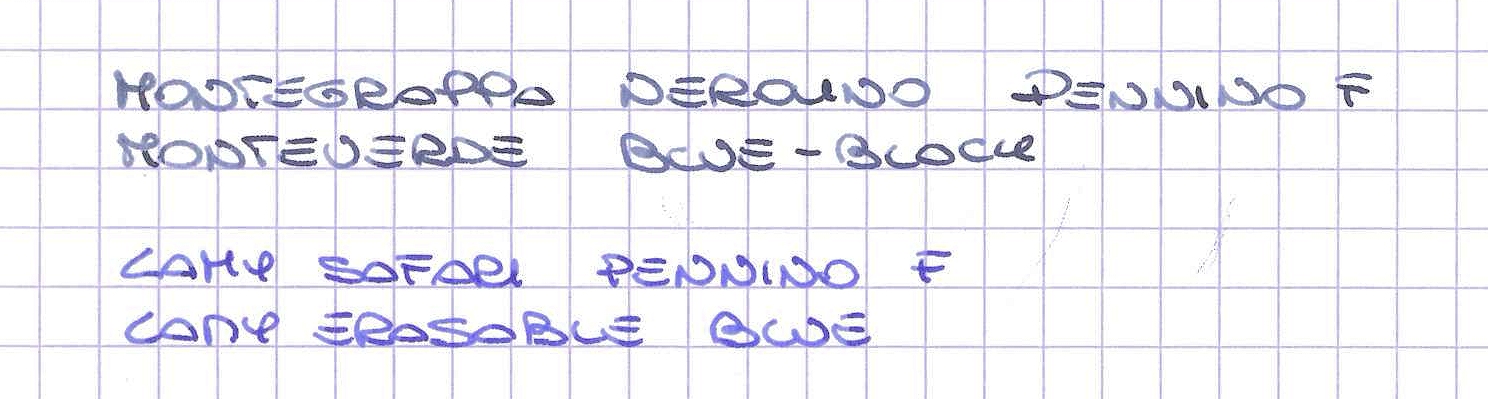 MONTEGRAPPA NEROUNO PENNINO F
MONTEVERDE BLUE-BLACK
LAMY SAFARI PENNINO F
LAMY ERASABLE BLUE